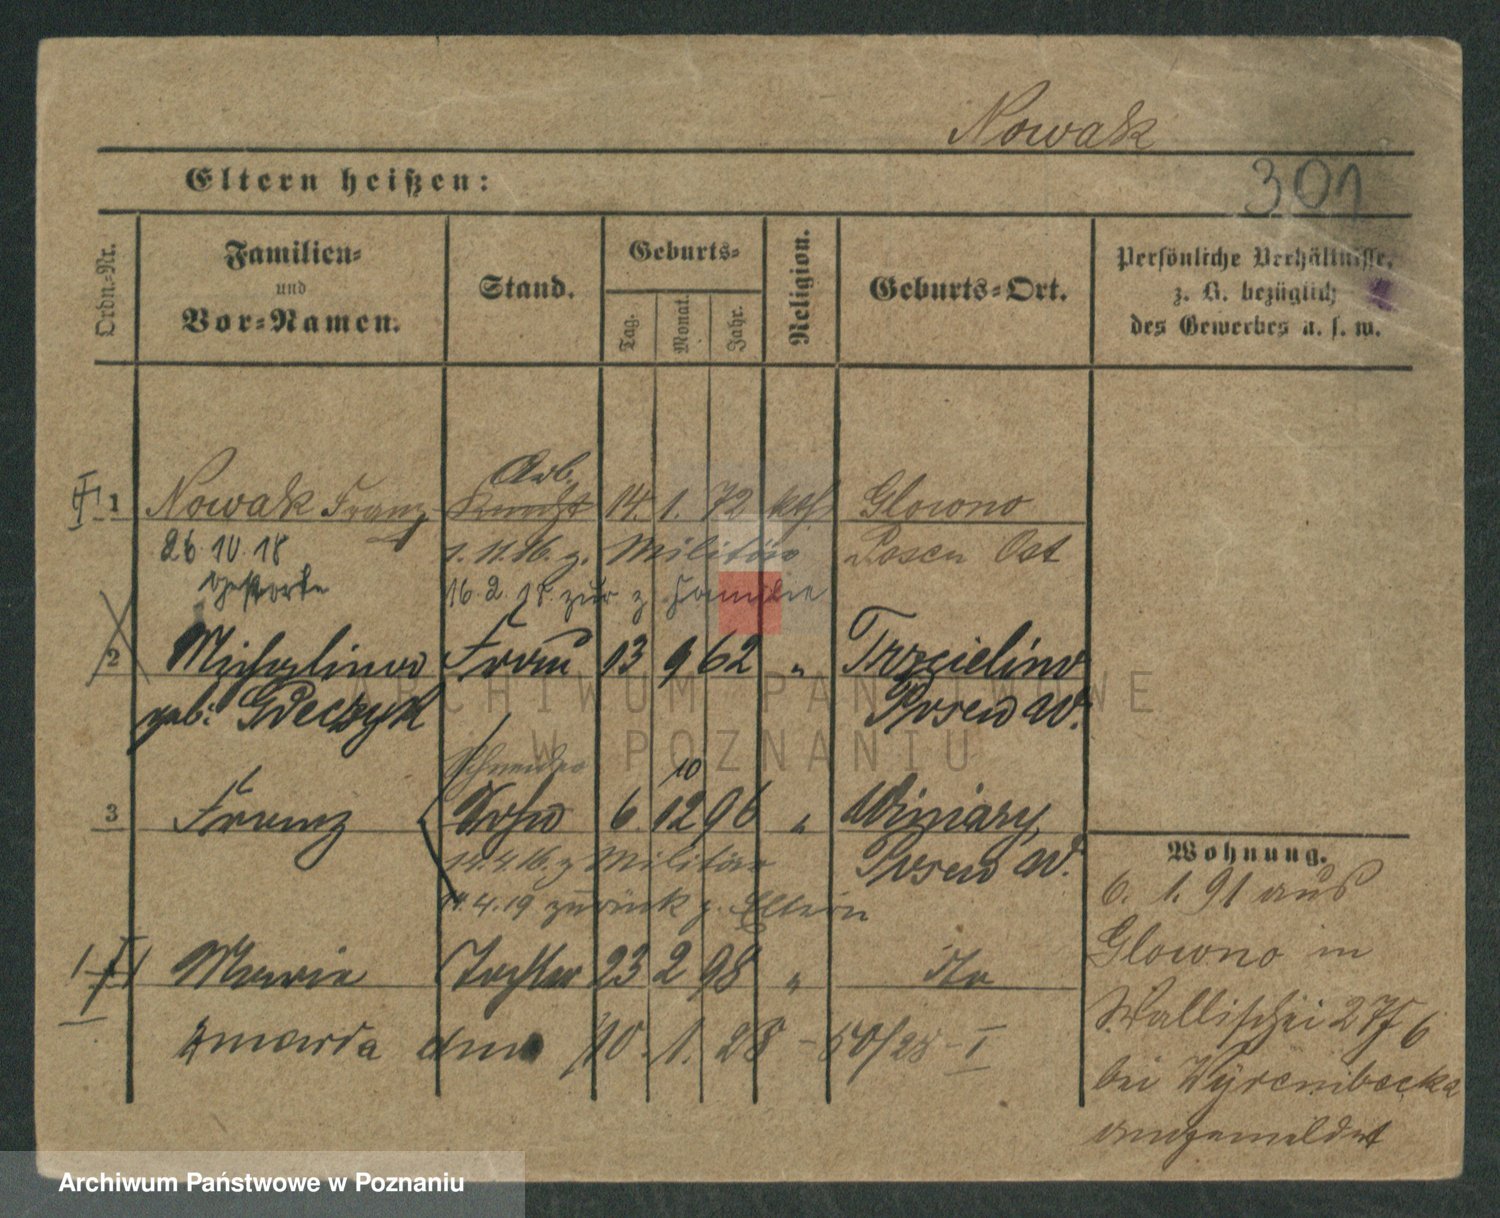 Nowak
301
Eltern heißen:
Ordn.-Nr.
Familien-
und
Vor-Namen.
Stand.
Geburts-
Tag.
Monat.
Jahr.
Religion.
Geburts-Ort.
Persönliche Verhältnisse,
z. B. bezüglich
des Gewerbes u. s. w.
Arb.
1 Nowak Franz Knecht 14. 1. 72 kath Glowno
26.10.18 1.11.16. z. Militär Posen Ost
gestorben 16.2.18. zur z Familie
2 Michalina Frau 13 9 62 " Trzcielino
geb: Posen W.
Schneider 10
3 Franz Sohn 6. 12 96 " Winiary
14.4.16. z Militär Posen W.
4.19 zurück z. Eltern
4 Maria Tochter 23 2 98 " dto
zmarła dnia 10. 1. 28 - 50/28 - I
Wohnung.
6. 1. 91 aus
Glowno in
Wallischei 27/6
bei
angemeldet
ARCHIWUM PAŃSTWOWE
W POZNANIU
Archiwum Państwowe w Poznaniu